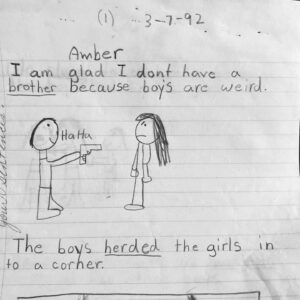 (1) 3-7-92
Amber
I am glad I dont have a
brother because boys are weird.
HaHa
The boys herded the girls in
to a corner.
your sentences.